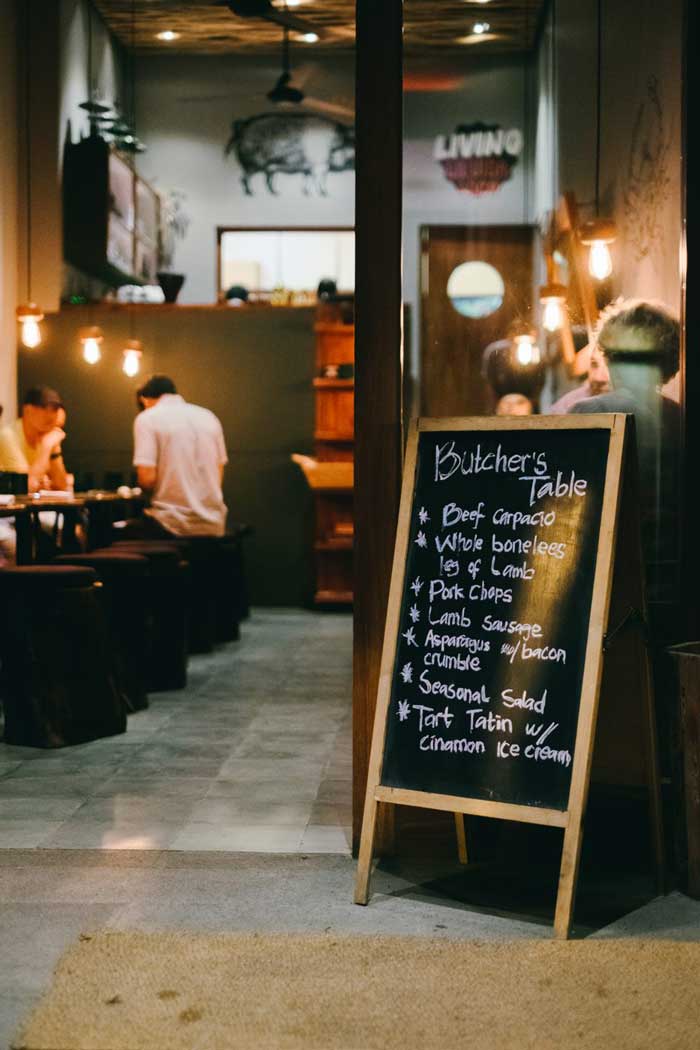 LIVING
Butcher's
Table
* Beef Carpacio
* Whole bonelees
leg of Lamb
* Pork Chops
* Lamb Sausage
* Asparagus w/ bacon
crumble
* Seasonal Salad
* Tart Tatin w/
cinamon Ice cream